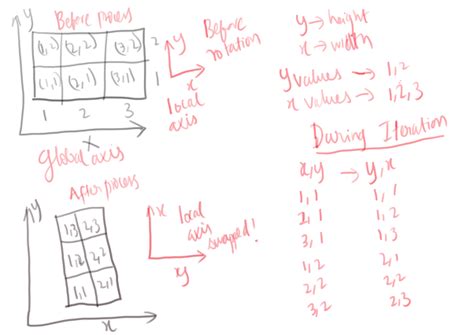 Before process
y
(1,2) (2,2) (3,2) 2
(1,1) (2,1) (3,1) 1
1 2 3
x
Global axis
y
x
local
axis
Before
rotation
y → height
x → width
y values → 1,2
x values → 1,2,3
During Iteration
x,y → y,x
1,1 1,1
2,1 1,2
3,1 1,3
1,2 2,1
2,2 2,2
3,2 2,3
After process
y
1,3 2,3
1,2 2,2
1,1 2,1
x
x
y
local
axis
swapped!